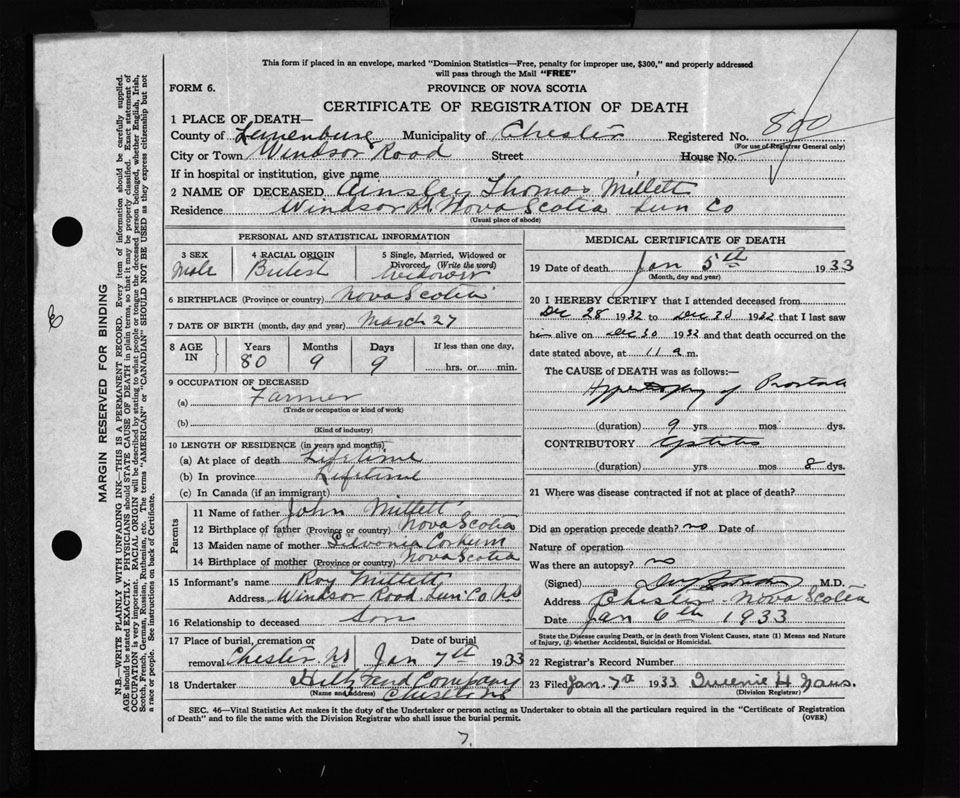 This form if placed in an envelope, marked "Dominion Statistics—Free, penalty for improper use, $300," and properly addressed
will pass through the Mail "FREE"
FORM 6.
PROVINCE OF NOVA SCOTIA
CERTIFICATE OF REGISTRATION OF DEATH
1 PLACE OF DEATH—
County of Lunenburg Municipality of Chester Registered No.
(For use of Registrar General only)
City or Town Windsor Road Street House No.
If in hospital or institution, give name
2 NAME OF DECEASED Ainsley Thomas Millett
Residence Windsor Rd Nova Scotia Lun Co
(Usual place of abode)
PERSONAL AND STATISTICAL INFORMATION
3 SEX 4 RACIAL ORIGIN 5 Single, Married, Widowed or
Divorced. (Write the word)
Male British Widower
6 BIRTHPLACE (Province or country) Nova Scotia
7 DATE OF BIRTH (month, day and year) March 27
8 AGE IN Years Months Days If less than one day,
80 9 9 hrs. or min.
9 OCCUPATION OF DECEASED
(a) Farmer
(Trade or occupation or kind of work)
(b)
(Kind of industry)
10 LENGTH OF RESIDENCE (in years and months)
(a) At place of death Lifetime
(b) In province Lifetime
(c) In Canada (if an immigrant)
Parents
11 Name of father John Millett
12 Birthplace of father (Province or country) Nova Scotia
13 Maiden name of mother Corkum
14 Birthplace of mother (Province or country) Nova Scotia
15 Informant's name Roy Millett
Address Windsor Road. Lun. Co. NS
16 Relationship to deceased Son
17 Place of burial, cremation or Date of burial
removal Chester. NS Jan 7th 1933
18 Undertaker and Company
(Name and address) NS
MEDICAL CERTIFICATE OF DEATH
19 Date of death Jan 5th 1933
(Month, day and year)
20 I HEREBY CERTIFY that I attended deceased from
Dec 28 1932 to Dec 30 1932 that I last saw
him alive on Dec 30 1932 and that death occurred on the
date stated above, at 11 a m.
The CAUSE of DEATH was as follows:—
Hypertrophy of Prostate
(duration) 9 yrs mos dys.
CONTRIBUTORY Cystitis
(duration) yrs mos 8 dys.
21 Where was disease contracted if not at place of death?
Did an operation precede death? no Date of
Nature of operation
Was there an autopsy? no
(Signed) M.D.
Address Chester Nova Scotia
Date Jan 6th 1933
State the Disease causing Death, or in death from Violent Causes, state (1) Means and Nature
of Injury, (2) whether Accidental, Suicidal or Homicidal.
22 Registrar's Record Number
23 Filed Jan. 7th 1933 Queenie H.
(Division Registrar)
SEC. 46—Vital Statistics Act makes it the duty of the Undertaker or person acting as Undertaker to obtain all the particulars required in the "Certificate of Registration
of Death" and to file the same with the Division Registrar who shall issue the burial permit.
(OVER)
7.
MARGIN RESERVED FOR BINDING
N.B.—WRITE PLAINLY WITH UNFADING INK—THIS IS A PERMANENT RECORD. Every item of information should be carefully supplied.
AGE should be stated EXACTLY. PHYSICIANS should STATE CAUSE OF DEATH in plain terms, so that it may be properly classified. Exact statement of
OCCUPATION is very important. RACIAL ORIGIN will be described by stating to what people or tongue the deceased person belonged, whether English, Irish,
Scotch, French, German, Russian, Ruthenian, etc. The terms "AMERICAN" or "CANADIAN" SHOULD NOT BE USED as they express citizenship but not
a race or people. See instructions on back of Certificate.